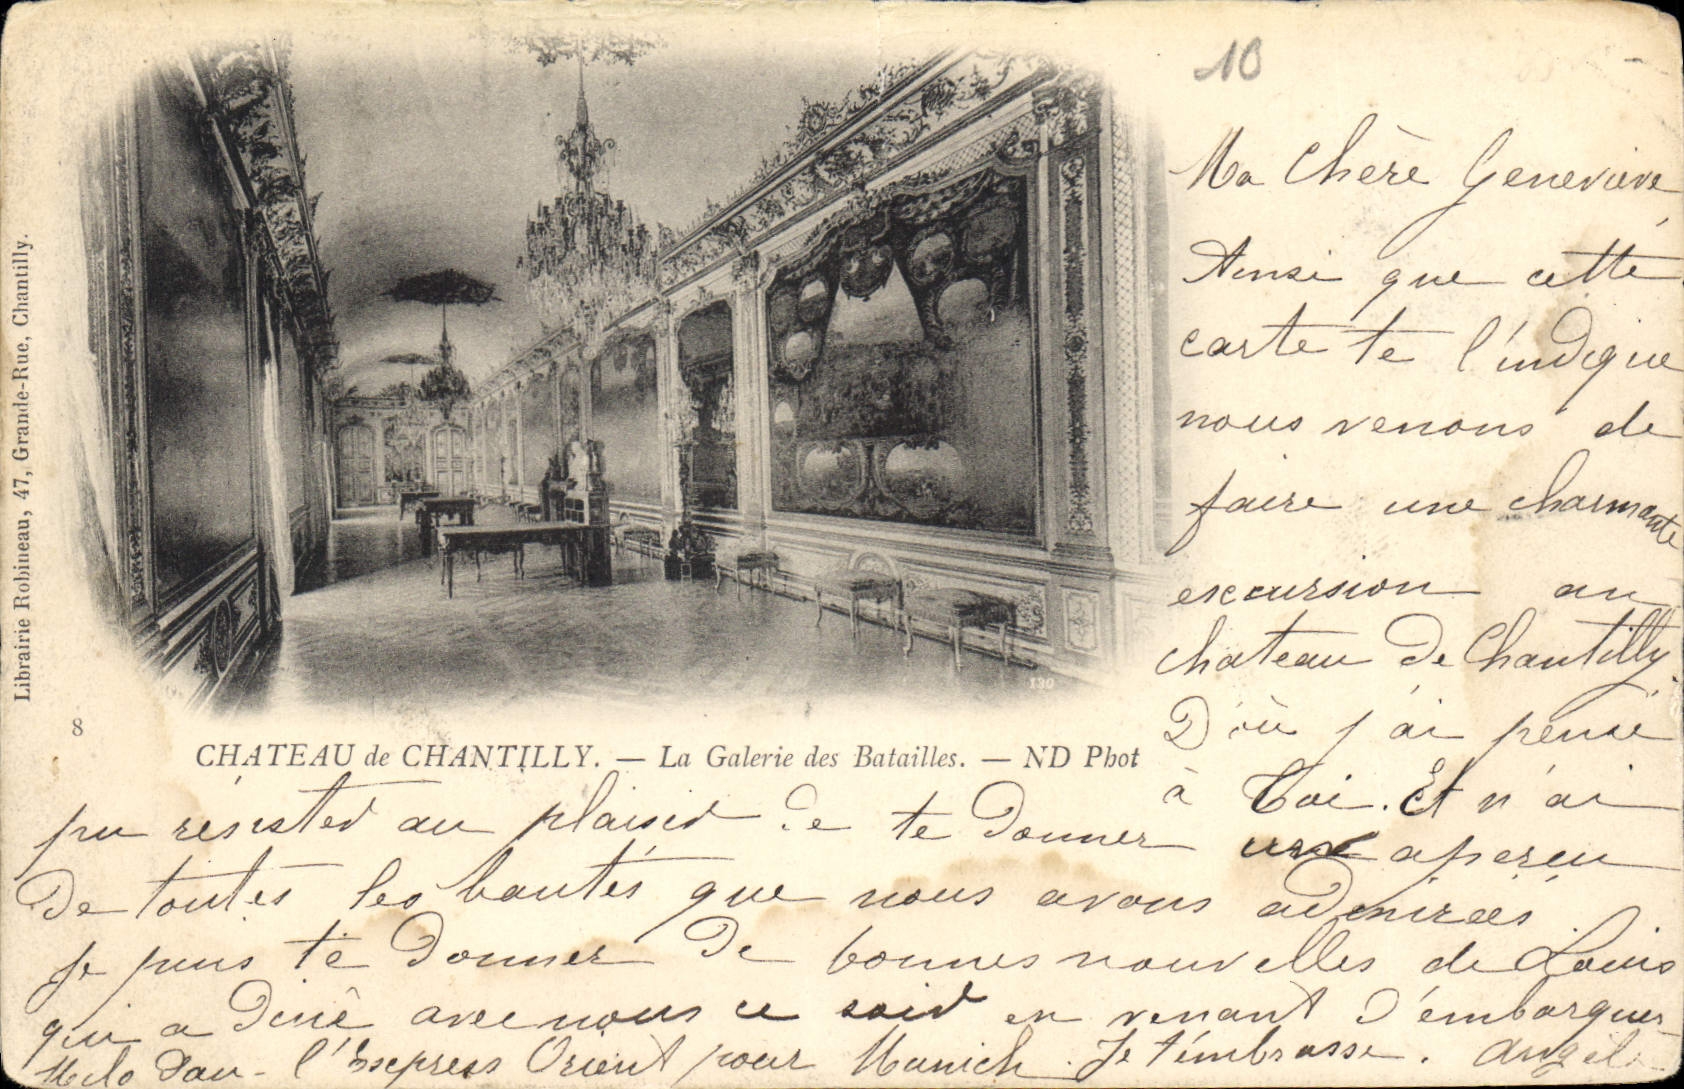 10
Ma Chère Geneviève
Ainsi que cette
carte te l'indique
nous venons de
faire une charmante
excursion au
chateau de Chantilly.
D'où j'ai pensé
à Toi. Et n'ai
pu résister au plaisir de te donner un aperçu
de toutes les bautés que nous avons admirées
Je puis te donner de bonnes nouvelles de Louis
qui a diné avec nous ce soir en venant d'embarquer
l'Express Orient pour Munich. Je t'embrasse. Angèle
130
8
CHATEAU de CHANTILLY. — La Galerie des Batailles. — ND Phot
Librairie Robineau, 47, Grande-Rue, Chantilly.